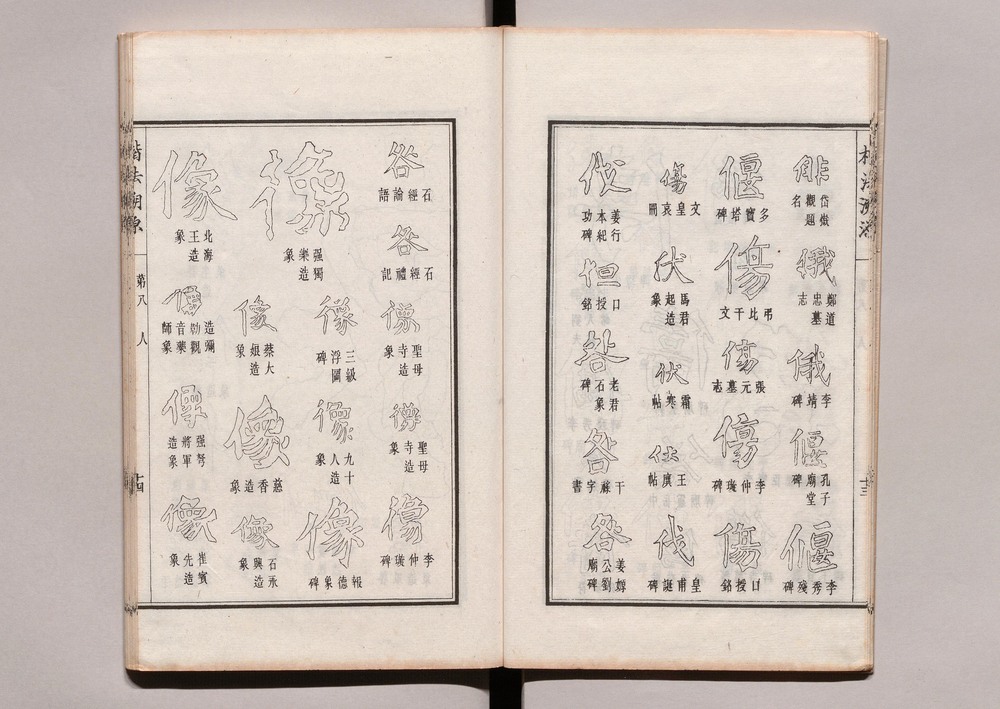 岱嶽觀題名
俄
鄭道忠墓志
俄
李靖碑
偃
孔子廟堂碑
偃
李秀殘碑
偃
多寶塔碑
傷
弔比干文
傷
張元墓志
傷
李仲璇碑
傷
口授銘
傷
文皇哀冊
伏
馬君起造象
伏
霜寒帖
王廙帖
伐
皇甫誕碑
伐
姜行本紀功碑
但
口授銘
咎
老君石象碑
咎
干祿字書
咎
姜嫄公劉廟碑
咎
石經論語
咎
石經禮記
像
聖母寺造象
像
聖母寺造象
像
李仲璇碑
像
强獨樂造象
像
三級浮圖碑
像
九十人造象
像
報德象碑
像
蔡大娘造象
像
慈香造象
像
石永興造象
像
北海王造象
像
造彌勒觀音藥師象
像
强弩將軍造象
像
崔賓先造象
楷法溯源
第八 人
十四